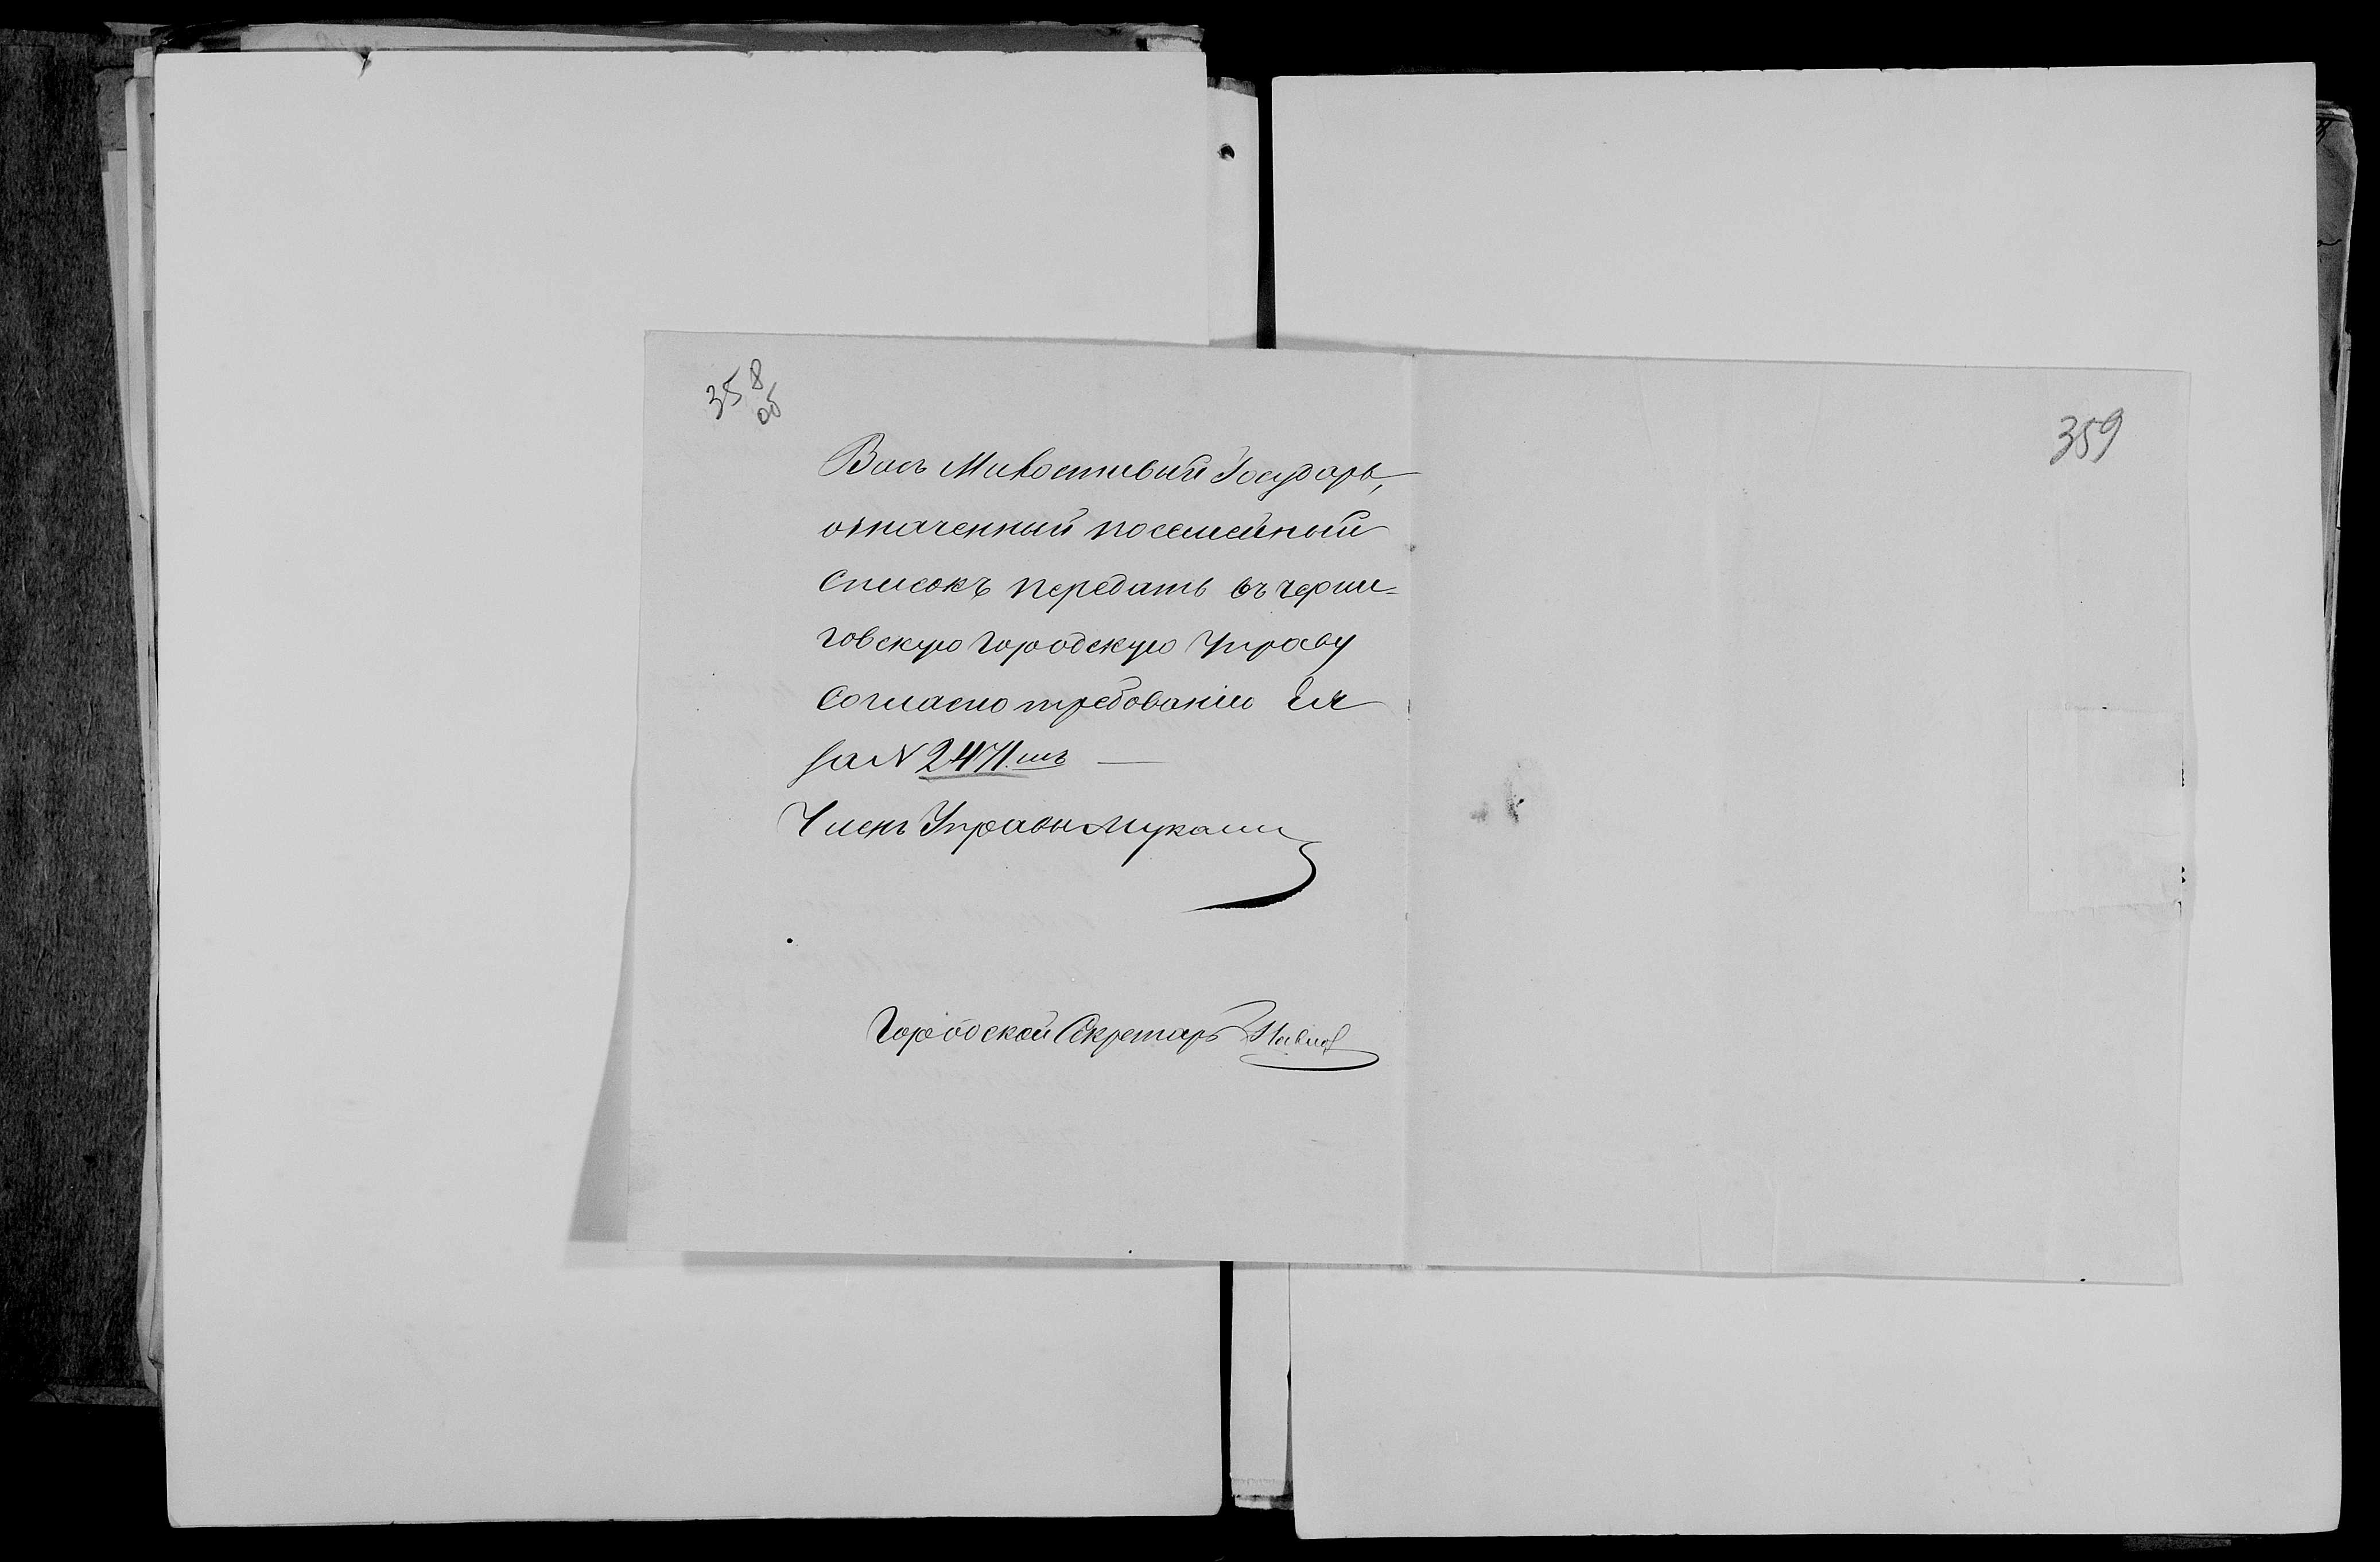 358
об
Васъ Милостивый Государь,
означенный посемейный
списокъ передать въ черни-
говскую городскую Управу
согласно требованию Ея
за N 2471.мъ —
Членъ Управы
Городской Секретарь
359